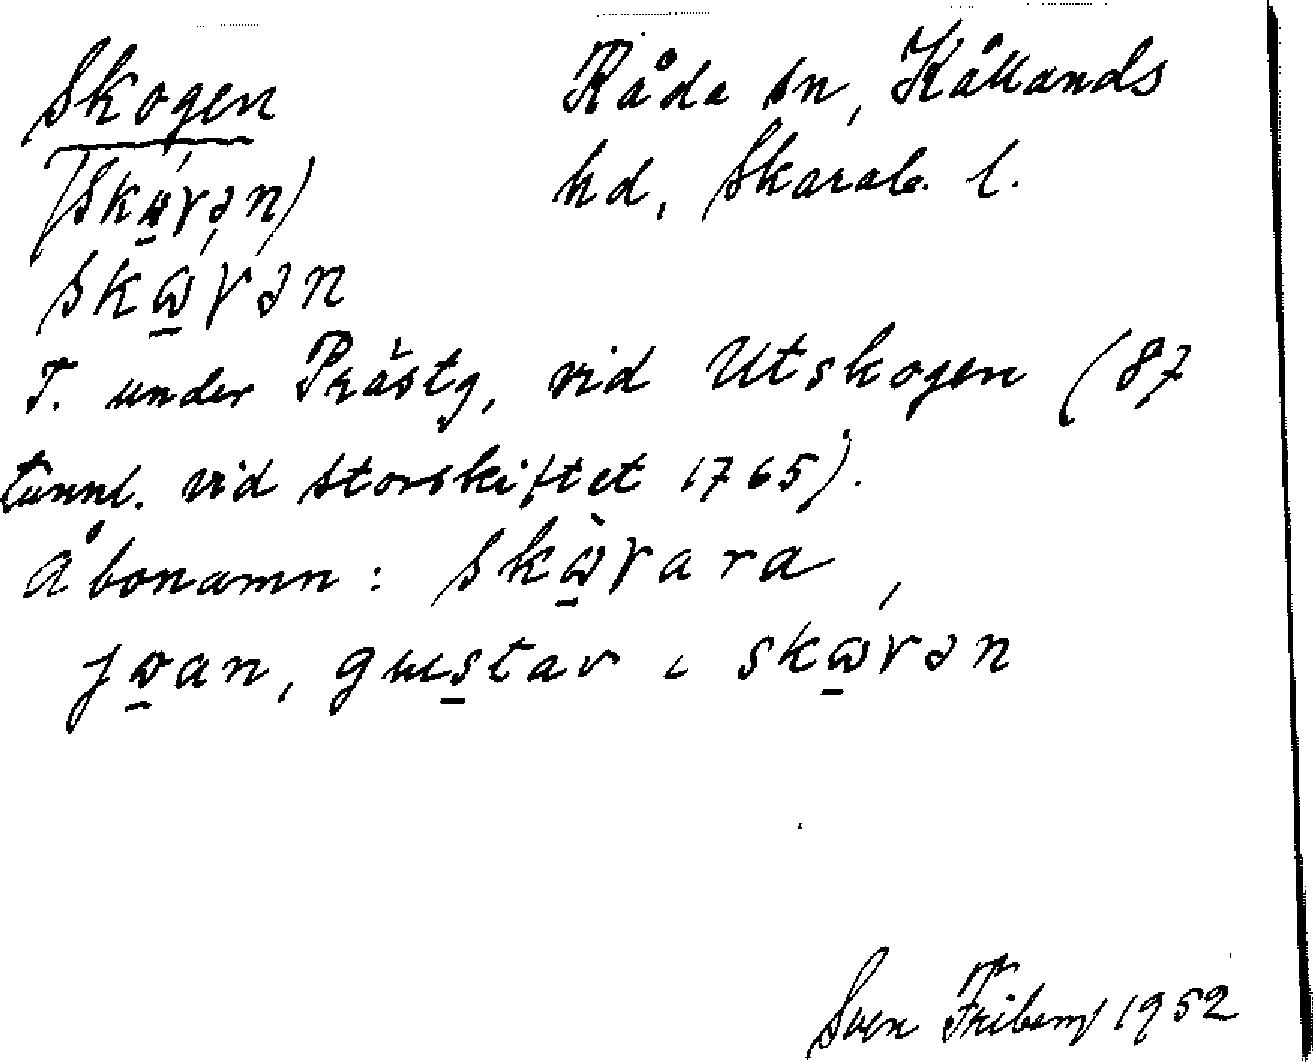 Skogen Råda sn, Kållands
(skώ̲γən) hd, Skarab. l.
skώ̲γən
T. under Prästg, vid Utskogen (87
tunnl. vid storskiftet 1765).
Åbonamn: skὼ̲γara
jo̲an, gus̲tav i skώ̲γən
Sven Friberg 1952